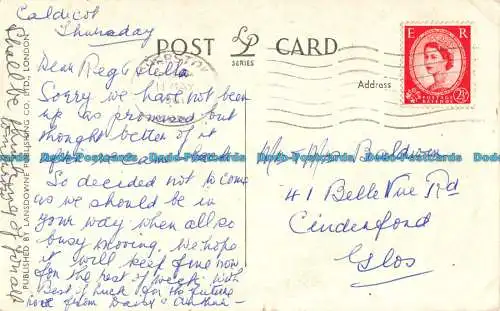 Caldicot
Thursday
Dear Reg & Stella
Sorry we have not been
up as promised but
thought better of it
So decided not to come
as we should be in
your way when all so
busy moving. We hope
it will keep fine now
for the rest of week. With
Best of luck for the future
love from Daisy & Arthur
POST CARD
LP
SERIES
Address
E R
POSTAGE
REVENUE
2½D
Baldwin
41 Belle Vue Rd
Cinderford
Glos
PUBLISHED BY LANSDOWNE PUBLISHING CO. LTD., LONDON
Dodo-Postcards Dodo-Postcards Dodo-Postcards Dodo-Postcards Dodo-Postcards